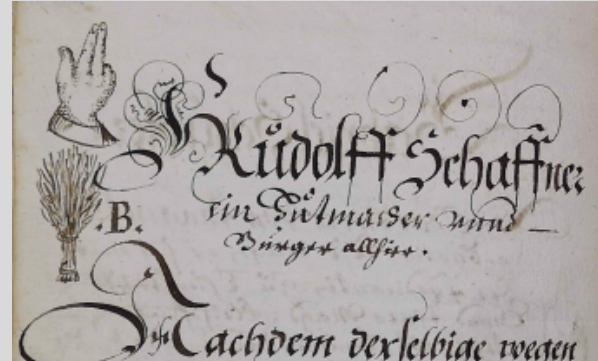 Růdolff Schaffner
.B.
ein Hůtmacher vnnd
Burger allhier.
Nachdem derselbige wegen